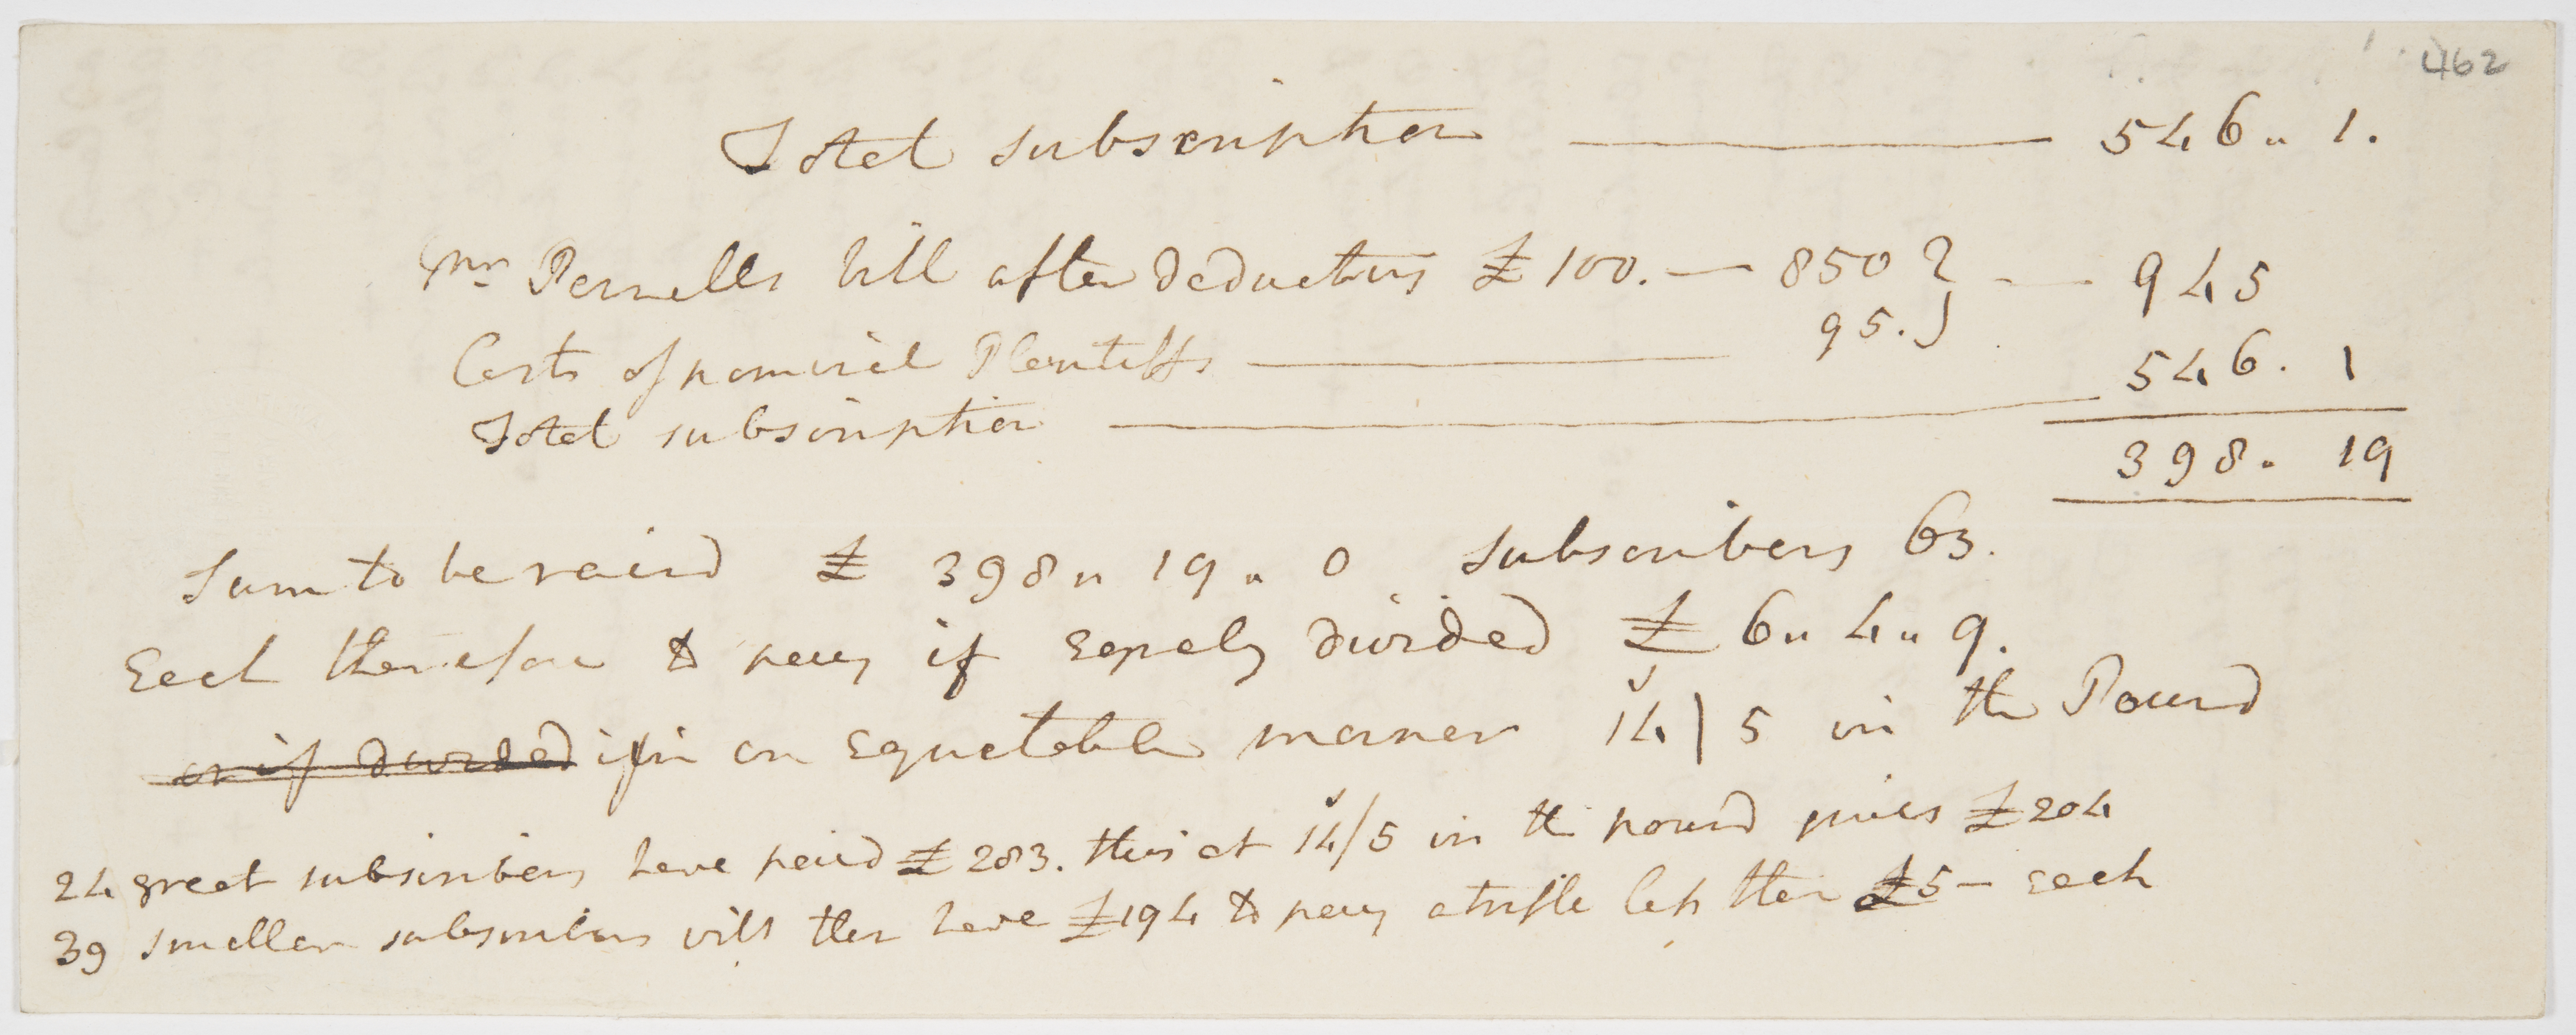 462
Total subscription — 546 " 1.
Mr Parnells bill after deducting £100. — 850 } — 945
Costs of nominal Plantiffs — 95. }
Total subscription — 546. 1
398. 19
Sum to be raisd £ 398 " 19 " 0 Subscribers 63.
Each therefore to pay if eqaly divided £ 6 " 4 " 9.
or if divided if in an equetable manner 14/5 in the Pound
24 great subscribers have paid £283. this at 14/5 in the pound gives £204
39 smaller subscribers will then have £194 to pay a trifle less then £5 — each